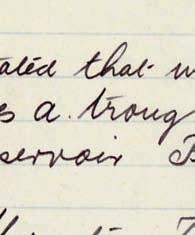 ated that w
s a troug
servoir B